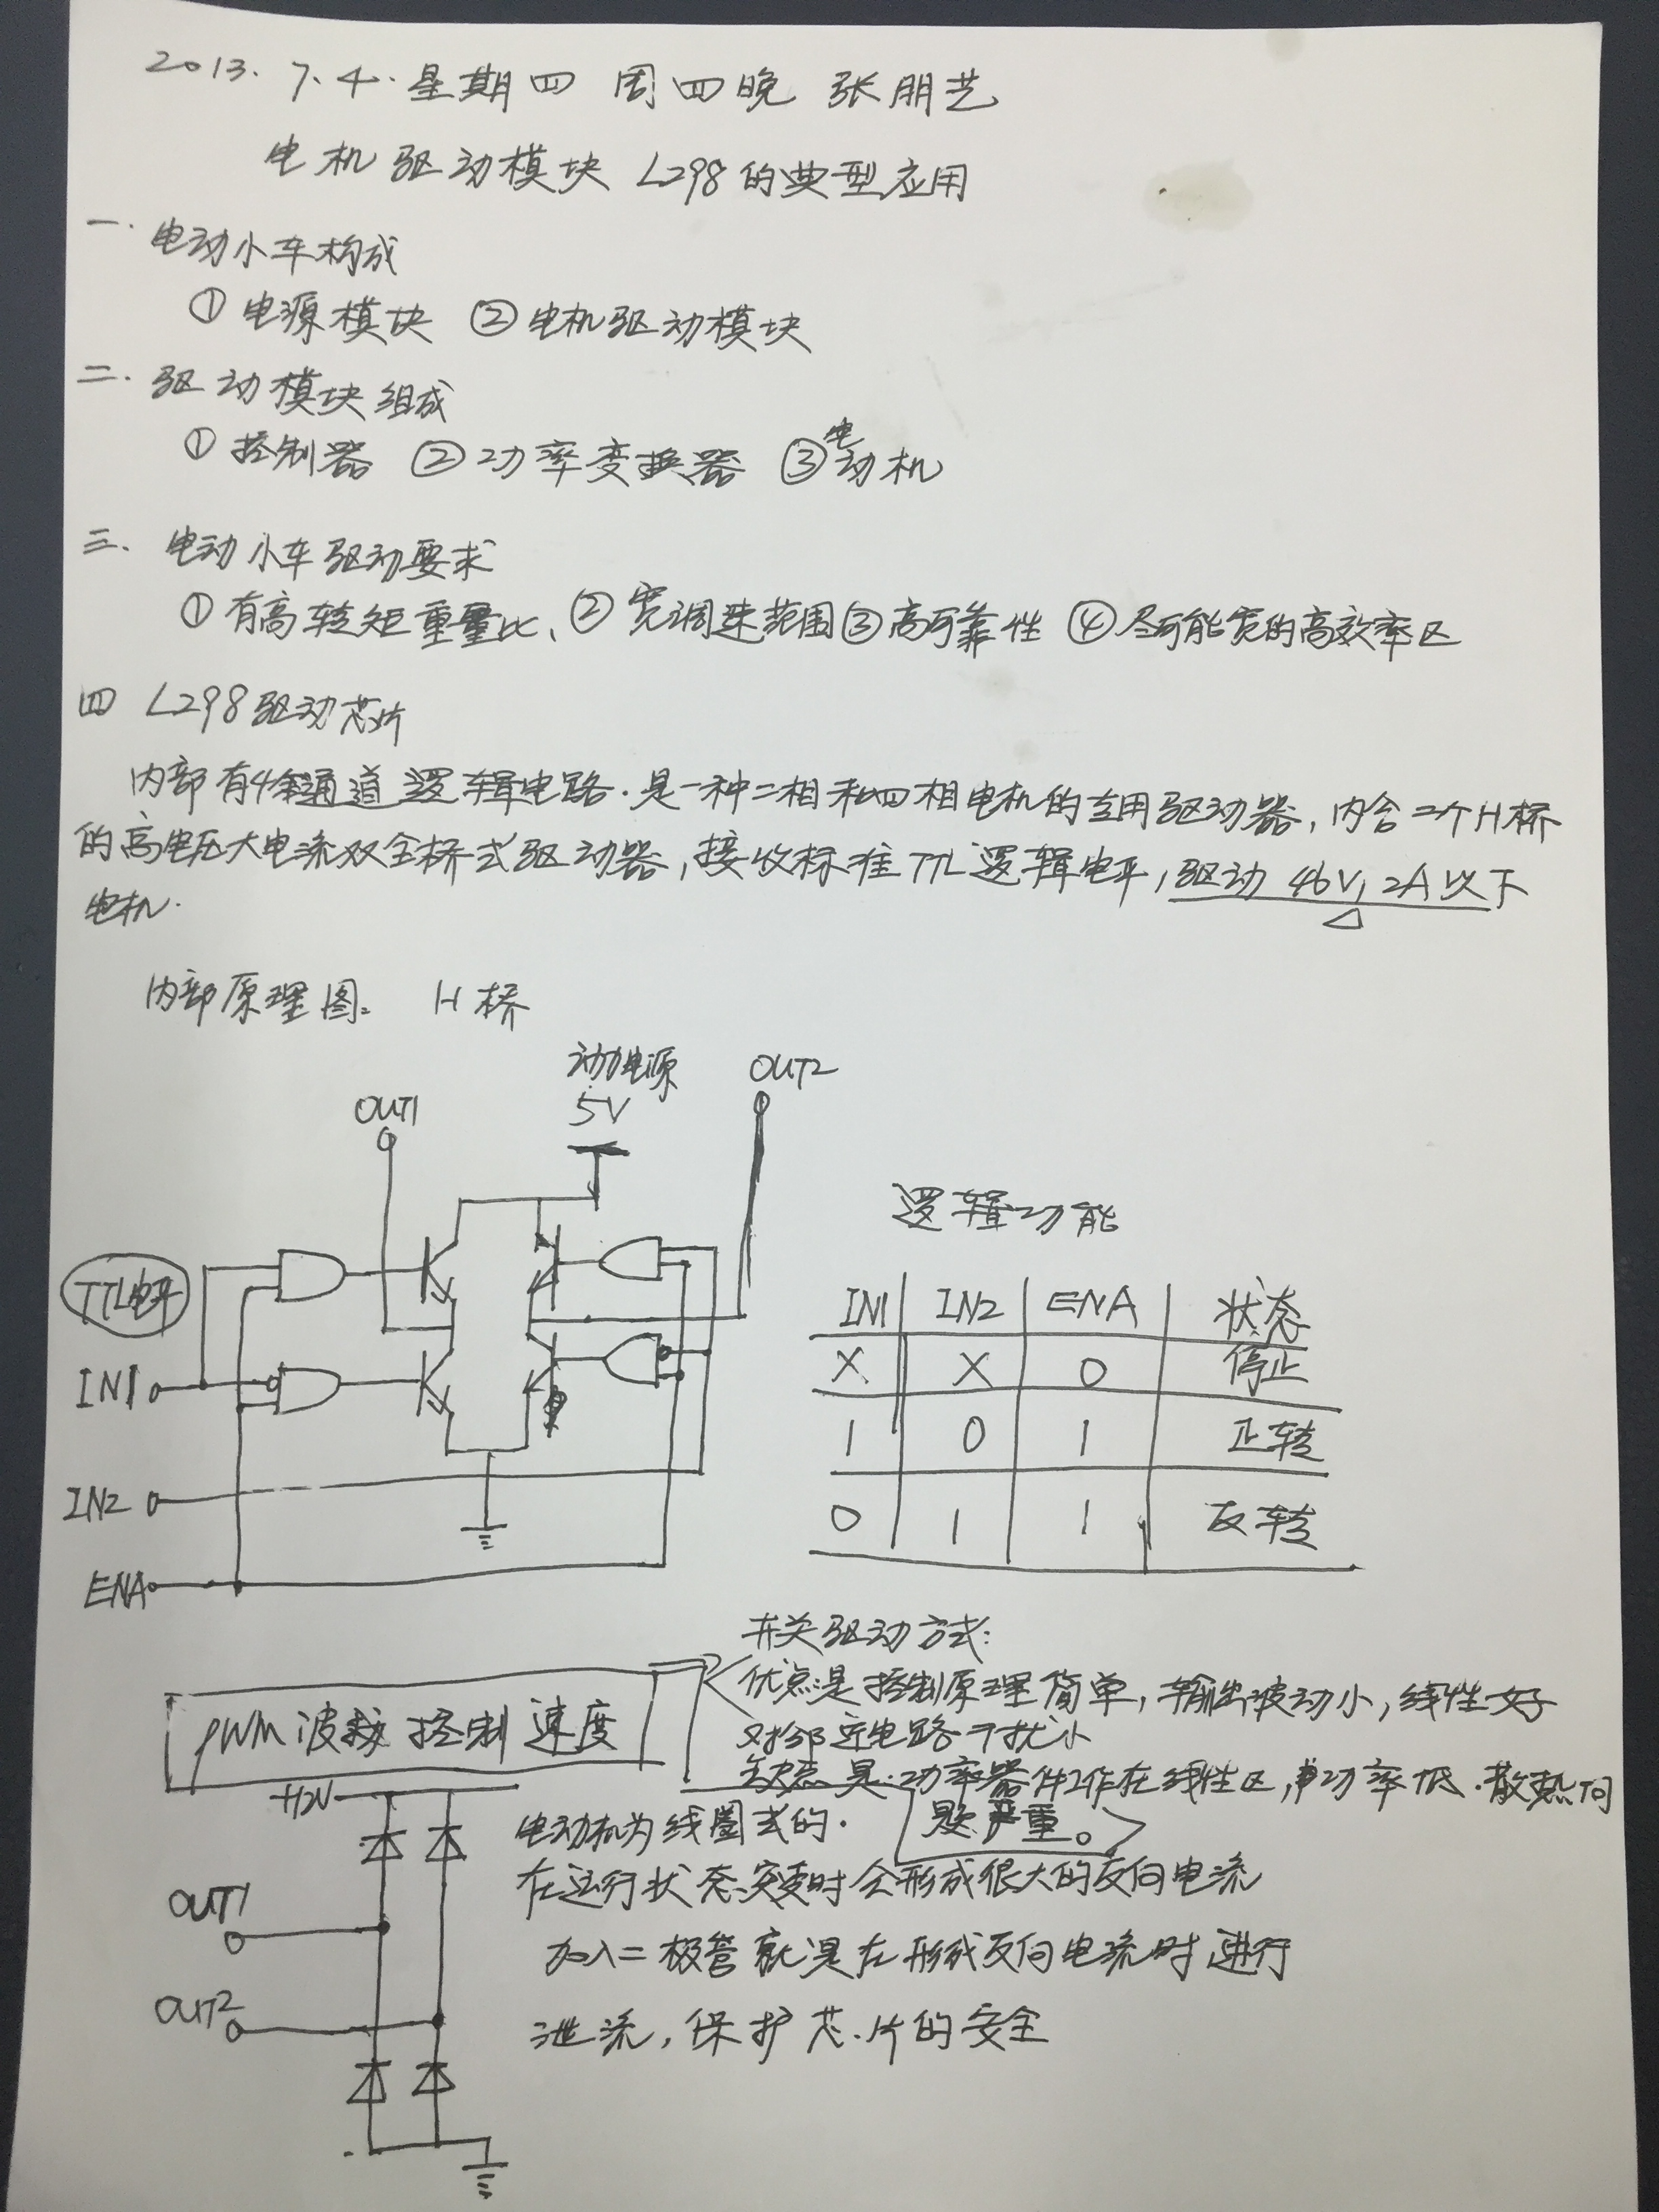 2013.7.4.星期四 周四晚 张朋艺
电机驱动模块 L298的典型应用
一. 电动小车构成
① 电源模块 ② 电机驱动模块
二. 驱动模块组成
① 控制器 ② 功率变换器 ③ 电动机
三. 电动小车驱动要求
① 有高转矩重量比、② 宽调速范围 ③ 高可靠性 ④ 尽可能宽的高效率区
四 L298驱动芯片
内部有4个通道逻辑电路.是一种二相和四相电机的专用驱动器,内含二个H桥
的高电压大电流双全桥式驱动器,接收标准TTL逻辑电平,驱动 46V,2A以下
电机.
内部原理图: H桥
动力电源
5V
OUT1
OUT2
TTL电平
IN1
IN2
ENA
逻辑功能
IN1 IN2 ENA 状态
X X 0 停止
1 0 1 正转
0 1 1 反转
开关驱动方式:
优点是控制原理简单,输出波动小,线性好
对邻近电路干扰小
缺点是:功率器件工作在线性区,功率低.散热问
题严重。
PWM波 控制速度
+12V
OUT1
OUT2
电动机为线圈式的.
在运行状态突变时会形成很大的反向电流
加入二极管就是在形成反向电流时进行
泄流,保护芯片的安全